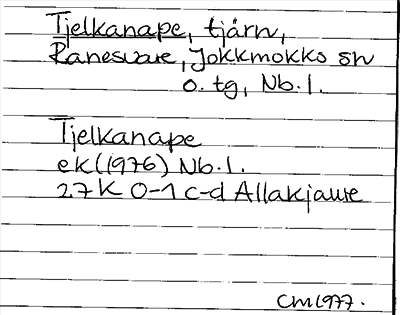 Tjelkanape, tjärn,
Ranesvare, Jokkmokks sn
o. tg, Nb. l.
Tjelkanape
ek (1976) Nb. l.
27K 0-1 c-d Allakjaure
CM 1977.